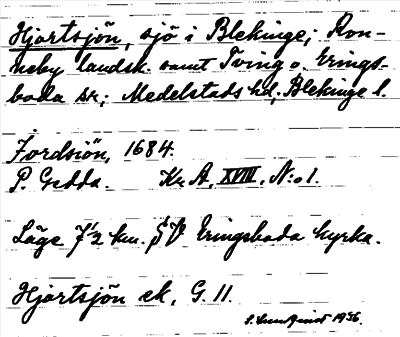 Hjortsjön, sjö i Blekinge; Ron-
neby landsk. samt Tving o. Erings-
boda sn; Medelstads hd, Blekinge l.
Jordsiön, 1684.
P. Gedda. Kr A, XVIII, N:o 1.
Läge 7½ km. SV Eringsboda kyrka.
Hjortsjön ek, G. 11.
1956.